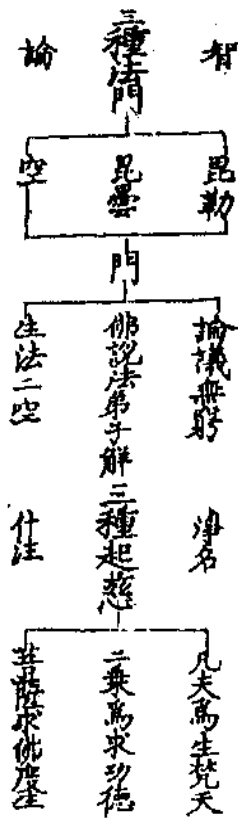 智
三種法門
論
毘勒
毘曇
空
門
論議無窮
佛說法弟子解
生法二空
淨名
三種起慈
什注
凡夫爲生梵天
二乘爲求功德
菩薩求佛度生